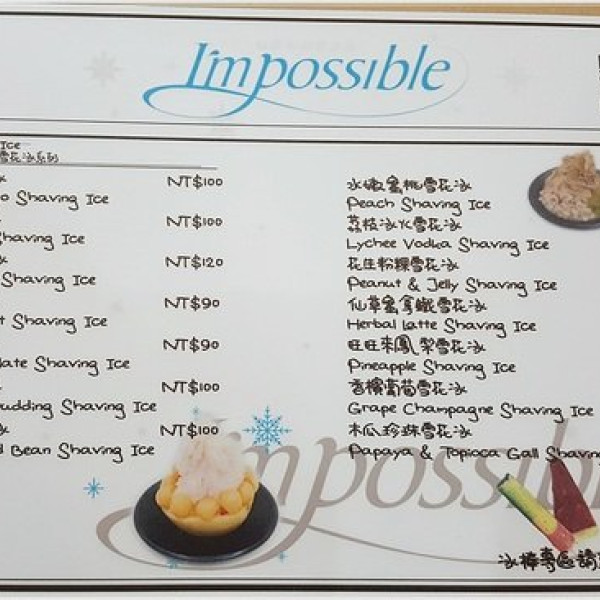 I'mpossible
Ice
雪花冰系列
NT$100
o Shaving Ice
NT$100
Shaving Ice
NT$120
Shaving Ice
NT$90
t Shaving Ice
NT$90
late Shaving Ice
NT$100
udding Shaving Ice
NT$100
d Bean Shaving Ice
冰嫩蜜桃雪花冰
Peach Shaving Ice
荔枝冰火雪花冰
Lychee Vodka Shaving Ice
花生粉粿雪花冰
Peanut & Jelly Shaving Ice
仙草蜜拿鐵雪花冰
Herbal Latte Shaving Ice
旺旺來鳳梨雪花冰
Pineapple Shaving Ice
香檳葡萄雪花冰
Grape Champagne Shaving Ice
木瓜珍珠雪花冰
Papaya & Topioca Gall Shaving
I'mpossibl
冰棒專區請